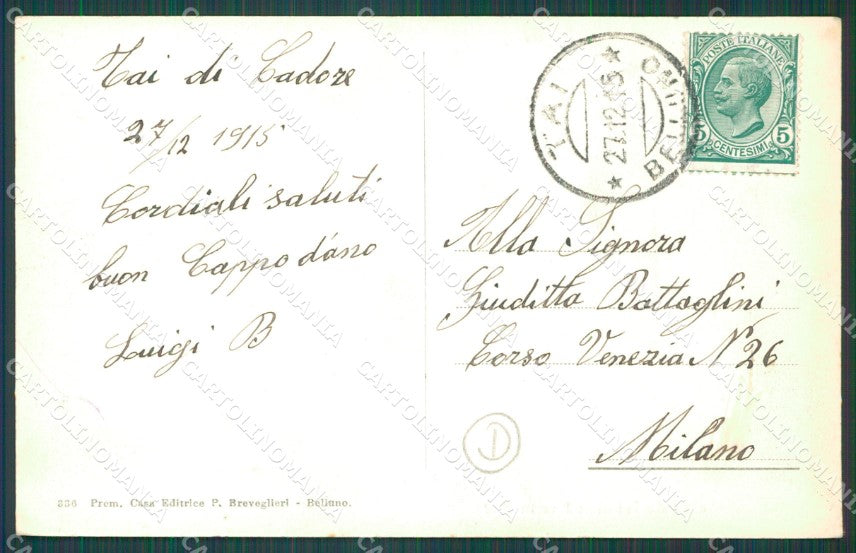 Tai di Cadore
27/12 1915
Cordiali saluti
buon Cappo d'ano
Luigi B
Alla Signora
Giuditta Battaglini
Corso Venezia N 26
Milano
TAI
27.12.15
BELLUNO
POSTE ITALIANE
5 5
CENTESIMI
D
356 Prem. Casa Editrice P. Breveglieri - Belluno.
CARTOLINOMANIA